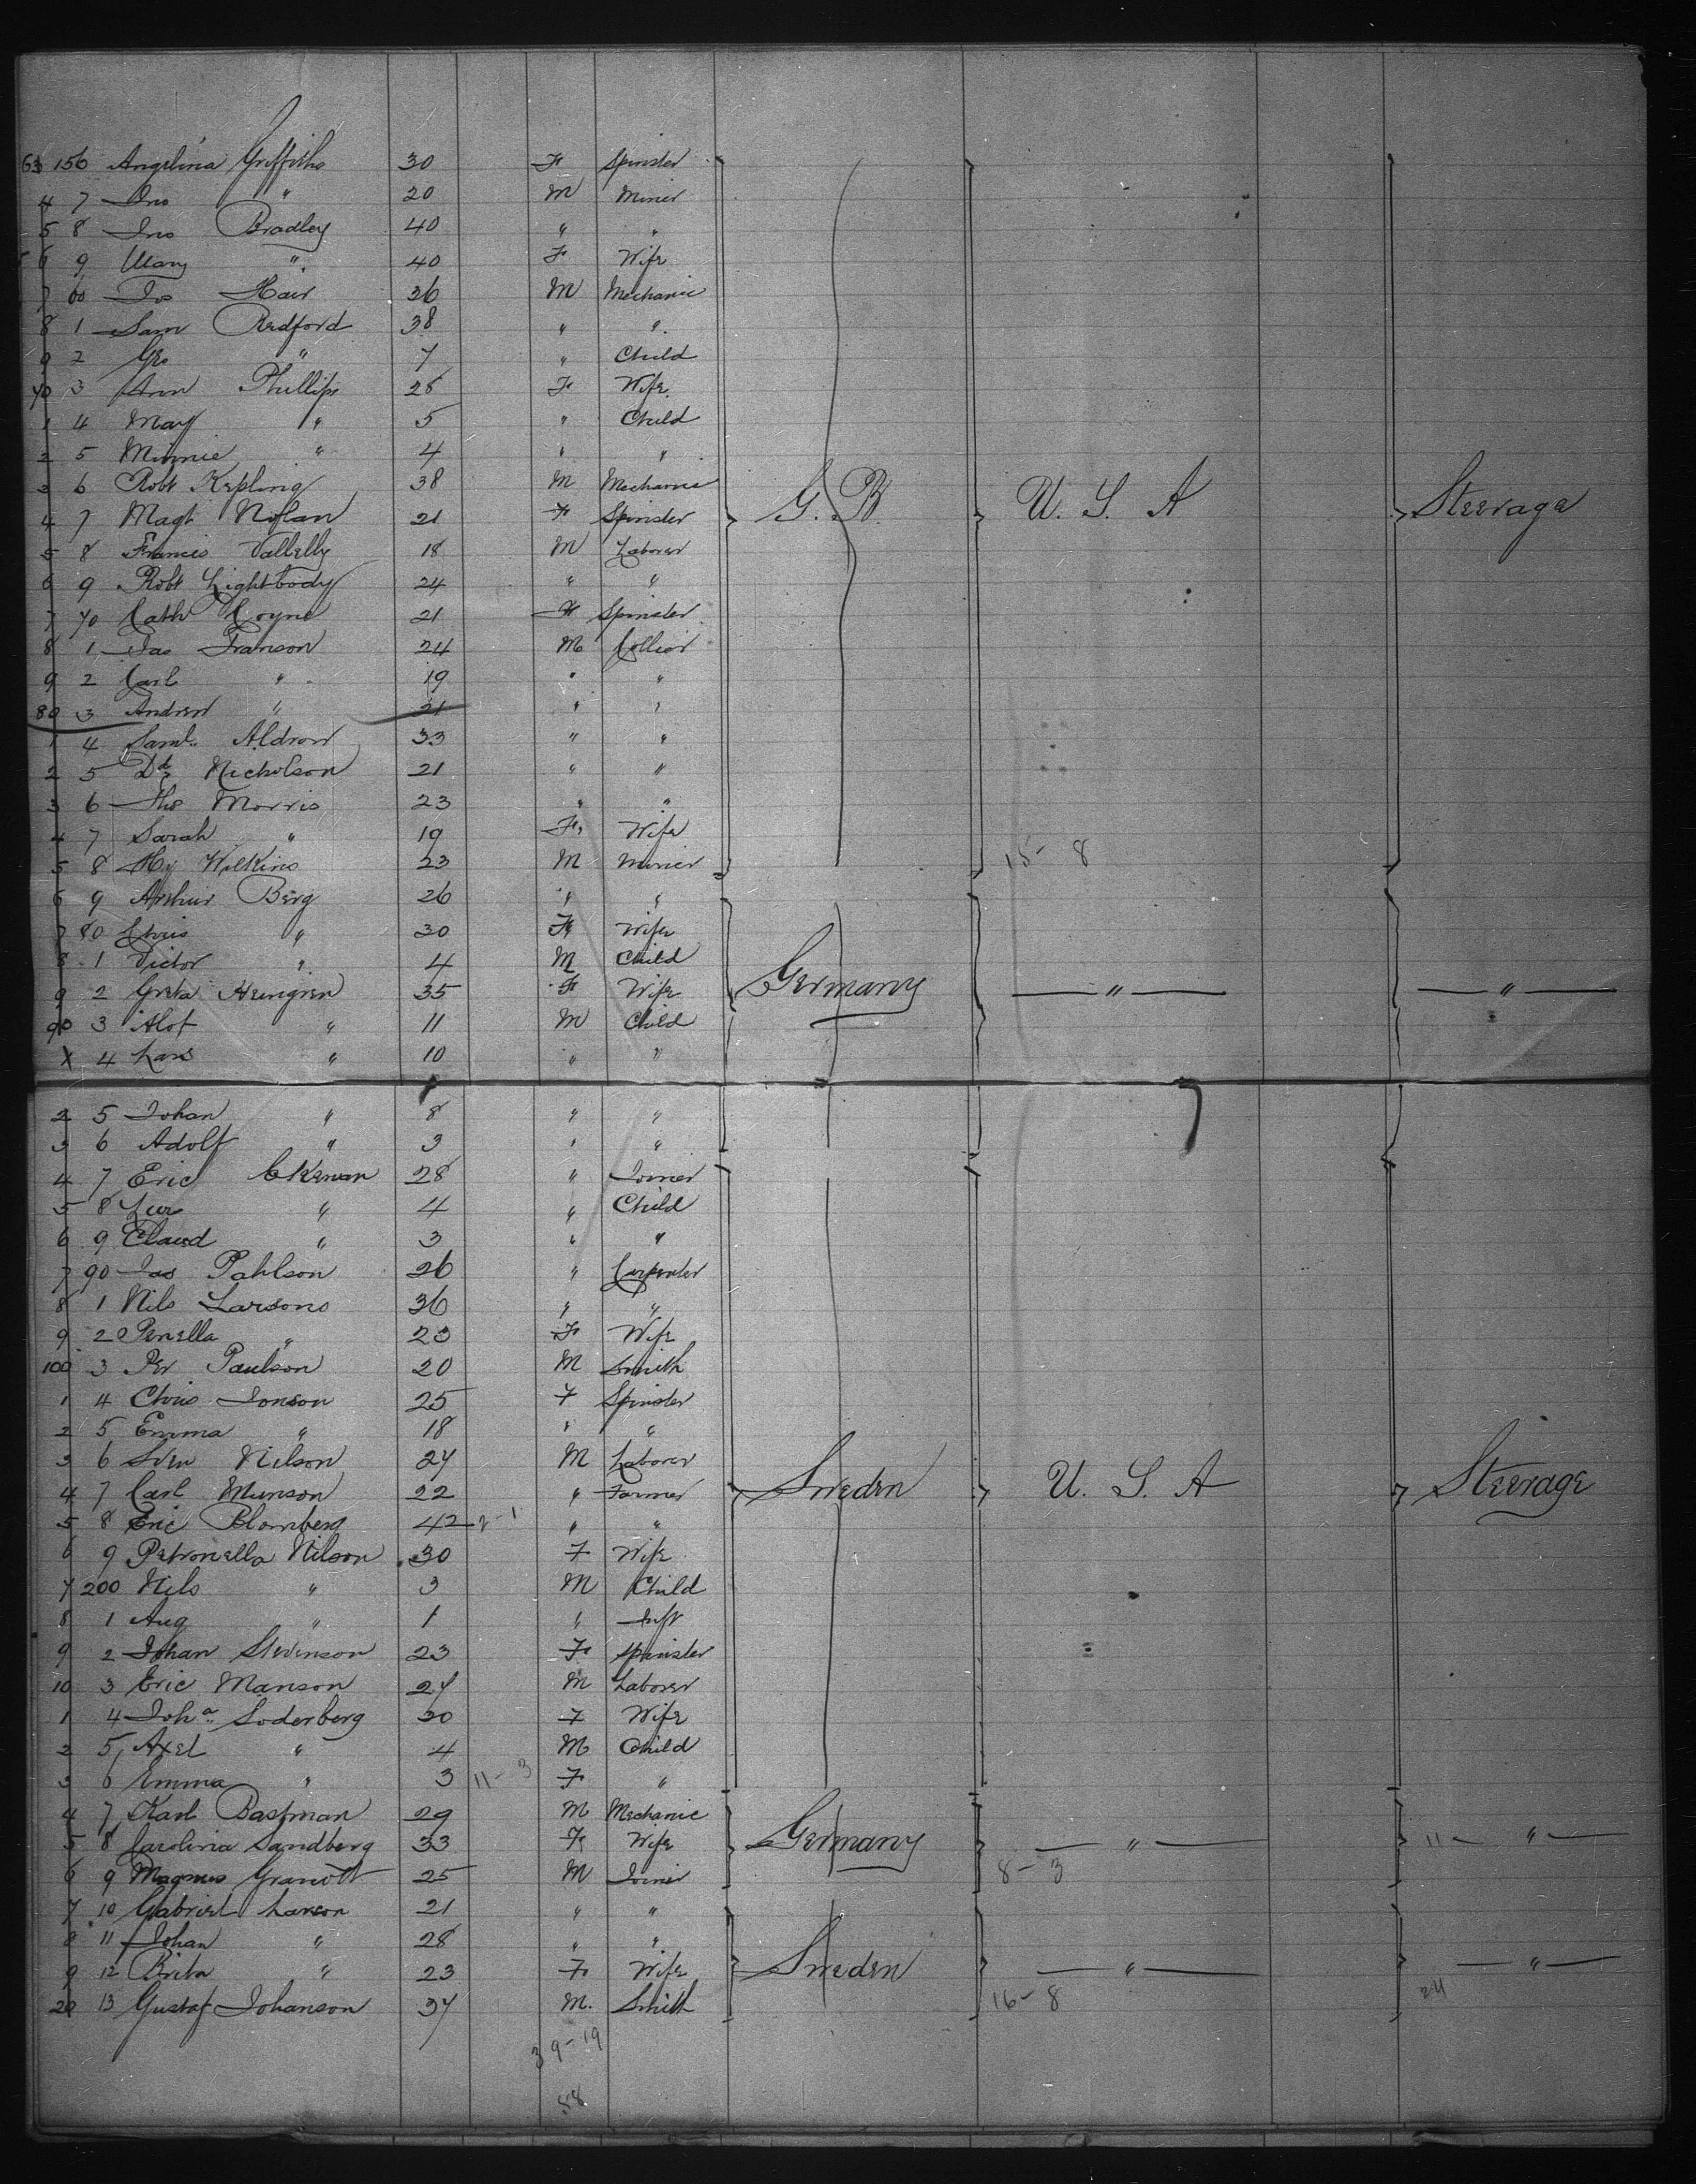 63 156 Angelina Griffiths 30 F Spinster
4 7 Jno " 20 M Miner
5 8 Jno Bradley 40 " "
6 9 Mary " 40 F Wife
7 60 Jos Hair 26 M Mechanic
8 1 Sam Redford 38 " "
9 2 Geo " 7 " Child
70 3 Ann Phillips 28 F Wife
1 4 May " 5 " Child
2 5 Minnie " 4 " "
3 6 Robt Kepling 38 M Mechanic G. B. U. S. A Steerage
4 7 Magt Nolan 21 F Spinster
5 8 Francis Vallelly 18 M Laborer
6 9 Robt Lightbody 24 " "
7 70 Cath Coyne 21 F Spinster
8 1 Jas Franson 24 M Collier
9 2 Carl " 19 " "
80 3 Andrew " 21 " "
1 4 Saml Aldron 33 " "
2 5 Dd Nicholson 21 " "
3 6 Tho Morris 23 " "
4 7 Sarah " 19 F Wife
5 8 Hy Wilkins 23 M Miner 15-8
6 9 Arthur Berg 26 " "
7 80 Chris " 30 F Wife
8 1 Victor " 4 M Child
9 2 Greta 35 F Wife Germany " "
90 3 Alof " 11 M Child
X 4 Lars " 10 " "
2 5 Johan " 8 " "
3 6 Adolf " 3 " "
4 7 Eric 28 " Joiner
5 8 " 4 " Child
6 9 Claud " 3 " "
7 90 Jas Pahlson 26 " Carpenter
8 1 Nils Larsons 36 " "
9 2 Penella " 23 F Wife
100 3 Per Paulson 20 M Smith
1 4 Chris Jonson 25 F Spinster
2 5 Emma " 18 " "
3 6 Sven Nilson 24 M Laborer
4 7 Carl Munson 22 " Farmer Sweden U. S. A Steerage
5 8 Eric Blomberg 42 2-1 " "
6 9 Petronella Nilson 30 F Wife
7 200 Nils " 3 M Child
8 1 Aug " 1 " Inft
9 2 Johan Stevenson 23 F Spinster
10 3 Eric Manson 24 M Laborer
1 4 Joha Soderberg 30 F Wife
2 5 Axel " 4 M Child
3 6 Emma " 3 11-3 F "
4 7 Karl Bastman 29 M Mechanic
5 8 Carolina Sandberg 33 F Wife Germany " 11 "
6 9 Magnus 25 M Joiner 8-3
7 10 Gabriel Larson 21 " "
8 11 Johan " 28 " "
9 12 Brita " 23 F Wife Sweden " "
20 13 Gustaf Johanson 37 M. Smith 16-8 24
39-19
58